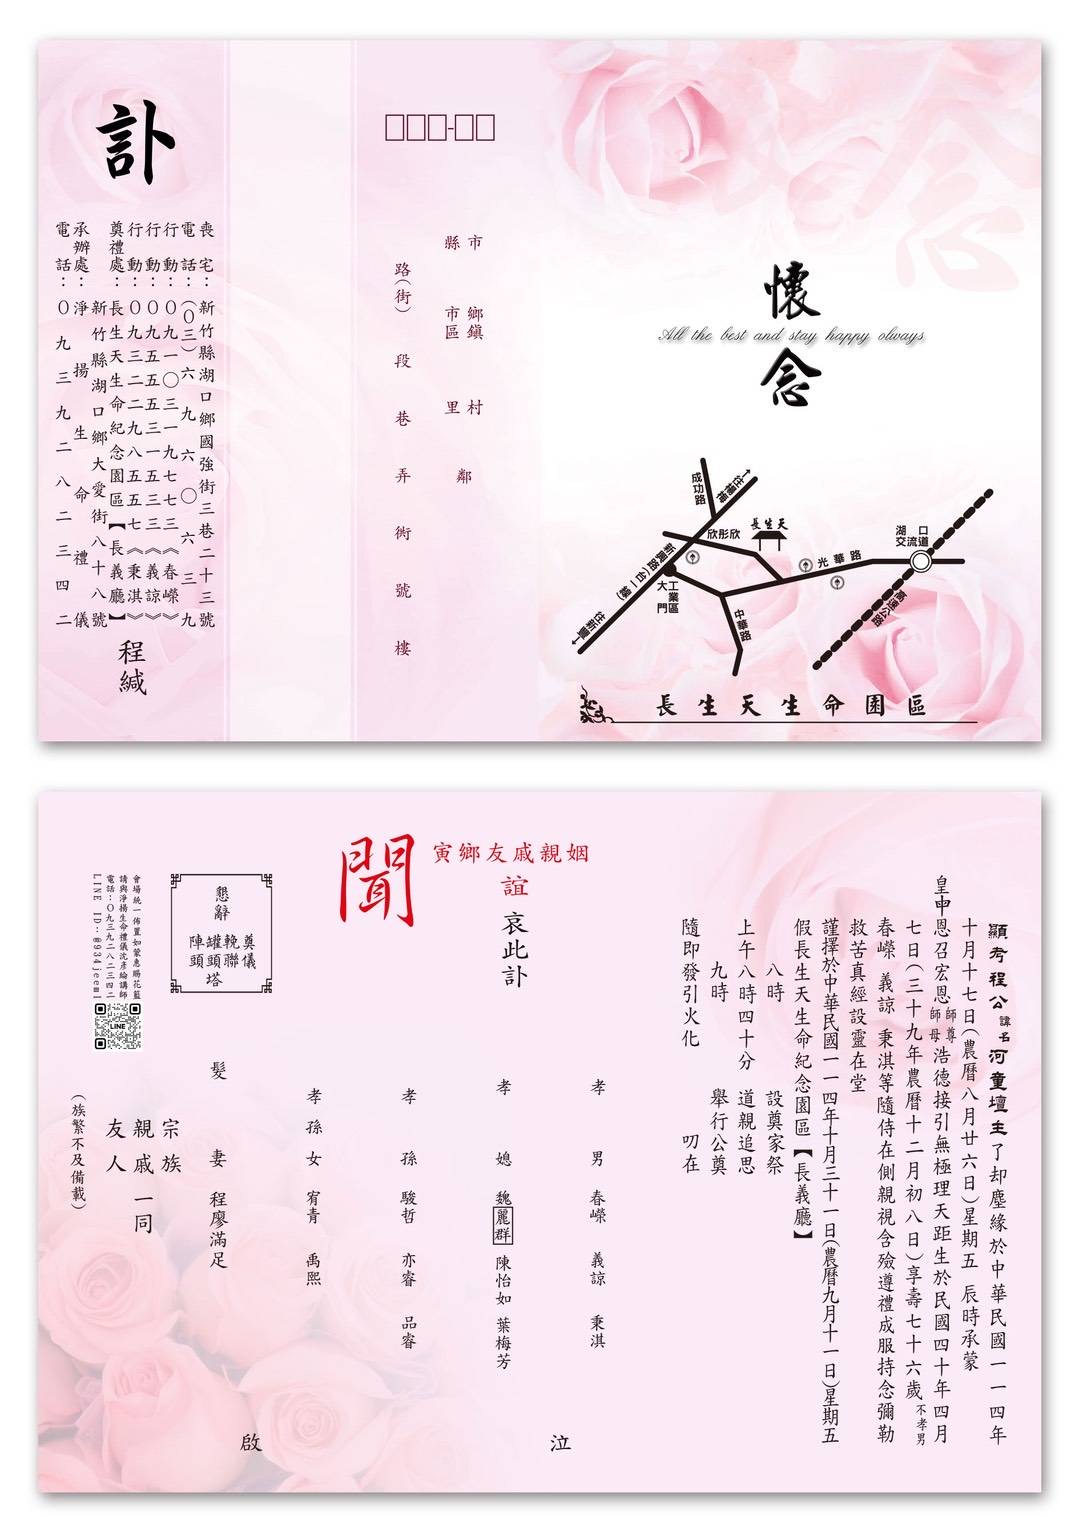 訃
喪宅：新竹縣湖口鄉國強街三巷二十三號
電話：（０三）六九六〇六三九
行動：０九一〇三一九七七三《春嶸》
行動：０九五五五三一五三三《義諒》
行動：０九三二二九八五五七《秉淇》
奠禮處：長生天生命紀念園區【長義廳】
新竹縣湖口鄉大愛街八十八號
承辦處：淨揚生命禮儀
電話：０九三九二八二三四二
程緘
□□□-□□
縣市
市區 鄉鎮
里村
鄰
路（街）
段
巷
弄
衖
號
樓
念
懷念
All the best and stay happy olways
成功路
↑往楊梅
欣彤欣
長生天
新興路(台一線)
往新豐↓
大門
工業區
中華路
光華路
湖口
交流道
高速公路
長生天生命園區
顯考程公諱名河童壇主了却塵緣於中華民國一一四年
十月十七日(農曆八月廿六日)星期五 辰時承蒙
皇申恩召宏恩師尊師母浩德接引無極理天距生於民國四十年四月
七日(三十九年農曆十二月初八日)享壽七十六歲不孝男
春嶸 義諒 秉淇等隨侍在側親視含殮遵禮成服持念彌勒
救苦真經設靈在堂
謹擇於中華民國一一四年十月三十一日(農曆九月十一日)星期五
假長生天生命紀念園區【長義廳】
八時 設奠家祭
上午八時四十分 道親追思
九時 舉行公奠
隨即發引火化 叨在
寅鄉友戚親姻
誼
哀此訃
聞
孝男 春嶸 義諒 秉淇
孝媳 魏麗群 陳怡如 葉梅芳
孝孫 駿哲 亦睿 品睿
孝孫女 宥青 禹熙
髮妻 程廖滿足
泣啟
宗族
親戚一同
友人
（族繁不及備載）
懇辭
奠儀
輓聯
罐頭塔
陣頭
會場統一佈置如蒙惠賜花籃
請與淨揚生命禮儀沈彥綸講師
電話：０九三九二八二三四二
LINE ID：@934jeeml
LINE